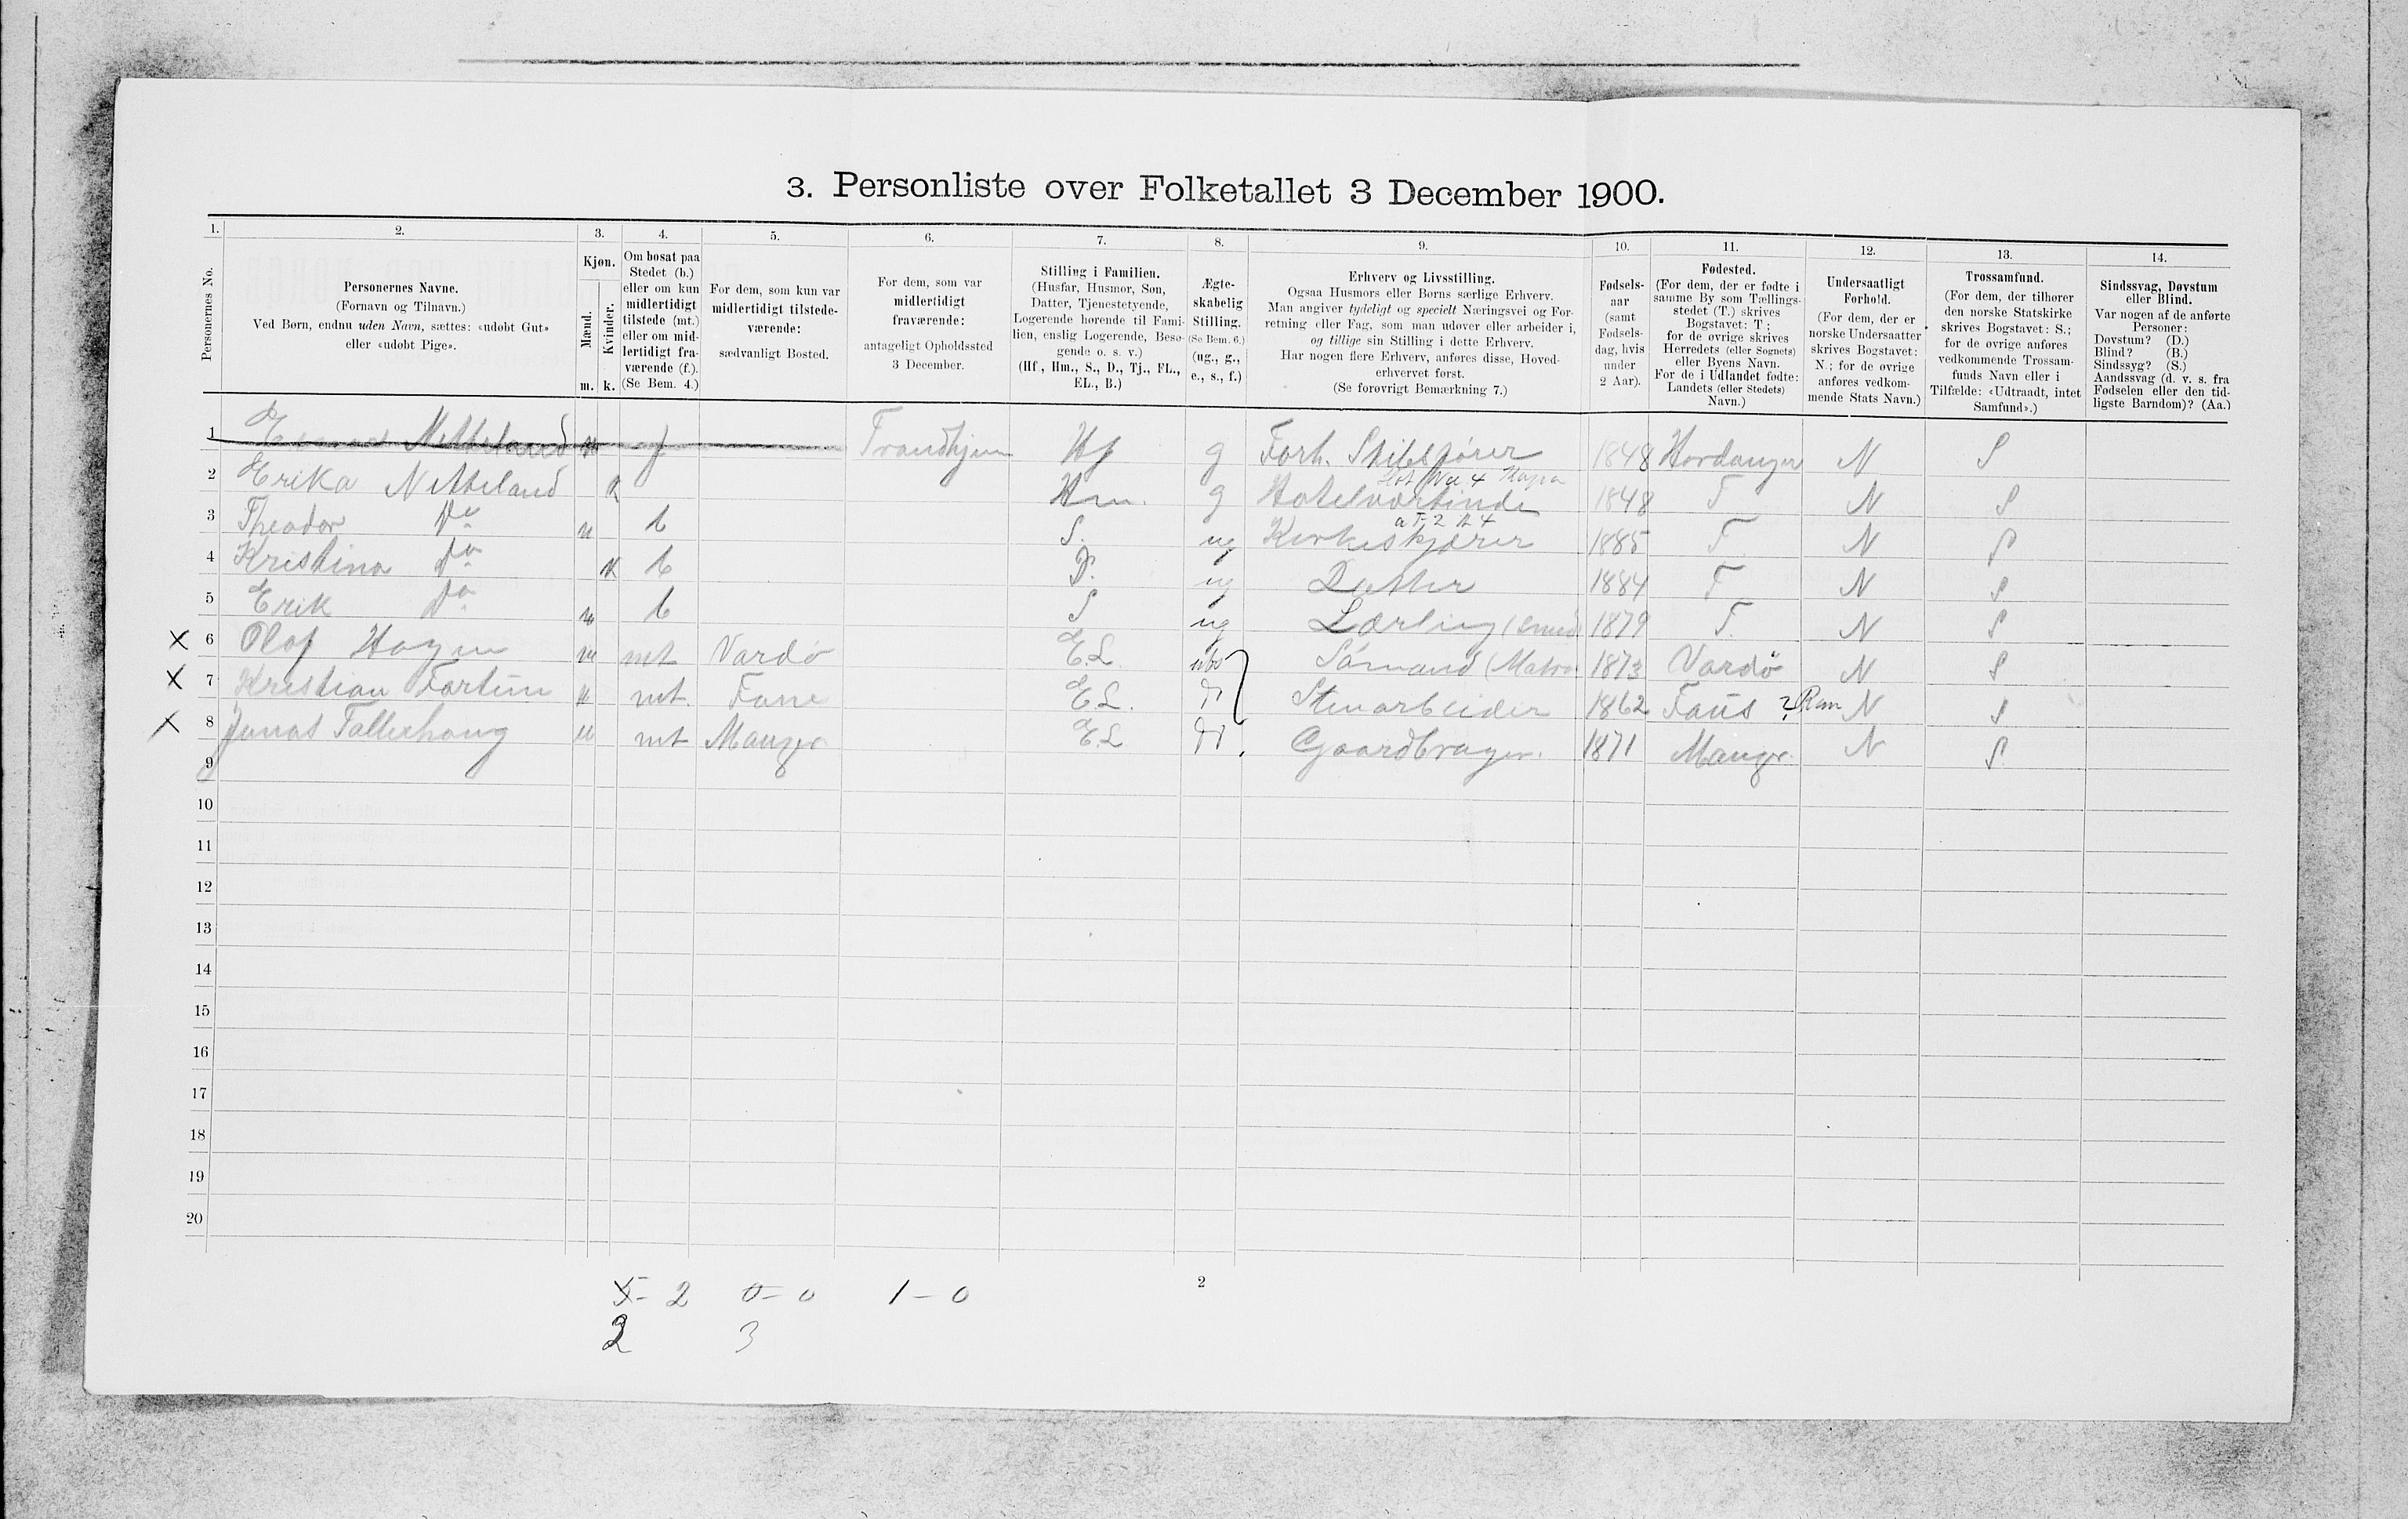 3. Personliste over Folketallet 3 December 1900.
1. 2. 3. 4. 5. 6. 7. 8. 9. 10. 11. 12. 13. 14.
Personernes No.
Personernes Navne.
(Fornavn og Tilnavn.)
Ved Børn, endnu uden Navn, sættes: «udøbt Gut»
eller «udøbt Pige».
Kjøn.
Mænd.
Kvinder.
m. k.
Om bosat paa
Stedet (b.)
eller om kun
midlertidigt
tilstede (mt.)
eller om mid-
lertidigt fra-
værende (f.).
(Se Bem. 4.)
For dem, som kun var
midlertidigt tilstede-
værende:
sædvanligt Bosted.
For dem, som var
midlertidigt
fraværende:
antageligt Opholdssted
3 December.
Stilling i Familien.
(Husfar, Husmor, Søn,
Datter, Tjenestetyende,
Logerende hørende til Fami-
lien, enslig Logerende, Besø-
gende o. s. v.)
(Hf., Hm., S., D., Tj., FL.,
EL., B.)
Ægte-
skabelig
Stilling.
(Se Bem. 6.)
(ug., g.,
e., s., f.)
Erhverv og Livsstilling.
Ogsaa Husmors eller Børns særlige Erhverv.
Man angiver tydeligt og specielt Næringsvei og For-
retning eller Fag, som man udøver eller arbeider i,
og tillige sin Stilling i dette Erhverv.
Har nogen flere Erhverv, anføres disse, Hoved-
erhvervet først.
(Se forøvrigt Bemærkning 7.)
Fødsels-
aar
(samt
Fødsels-
dag, hvis
under
2 Aar).
Fødested.
(For dem, der er fødte i
samme By som Tællings-
stedet (T.) skrives
Bogstavet: T;
for de øvrige skrives
Herredets (eller Sognets)
eller Byens Navn.
For de i Udlandet fødte:
Landets (eller Stedets)
Navn.)
Undersaatligt
Forhold.
(For dem, der er
norske Undersaatter
skrives Bogstavet:
N.; for de øvrige
anføres vedkom-
mende Stats Navn.)
Trossamfund.
(For dem, der tilhører
den norske Statskirke
skrives Bogstavet: S.;
for de øvrige anføres
vedkommende Trossam-
funds Navn eller i
Tilfælde: «Udtraadt, intet
Samfund».)
Sindssvag, Døvstum
eller Blind.
Var nogen af de anførte
Personer:
Døvstum? (D.)
Blind? (B.)
Sindssyg? (S.)
Aandssvag (d. v. s. fra
Fødselen eller den tid-
ligste Barndom)? (Aa.)
1 Netteland m f Trondhjem Hf g Forh. Skibsfører 1848 Hardanger N S
2 Erika Netteland k Hm. g Hotelværtinde 1848 T N S
3 Theodor Do m b S. ug Kirkeskjærer 1885 T N S
4 Kristina Do k b D. ug Datter 1884 T N S
5 Erik Do m b S ug Lærling (smed 1879 T. N S
x 6 Olaf Hagen m mt Vardø E.L. ubs Sømand (Matro 1873 Vardø N S
x 7 Kristian Fortun m mt. Fane E.L. Do Stenarbeider 1862 ? N S
x 8 Jonas m mt Manger E.L Do. Gaardbruger. 1871 Manger N S
9
10
11
12
13
14
15
16
17
18
19
20
5 - 2 0 - 0 1 - 0
2
2 3